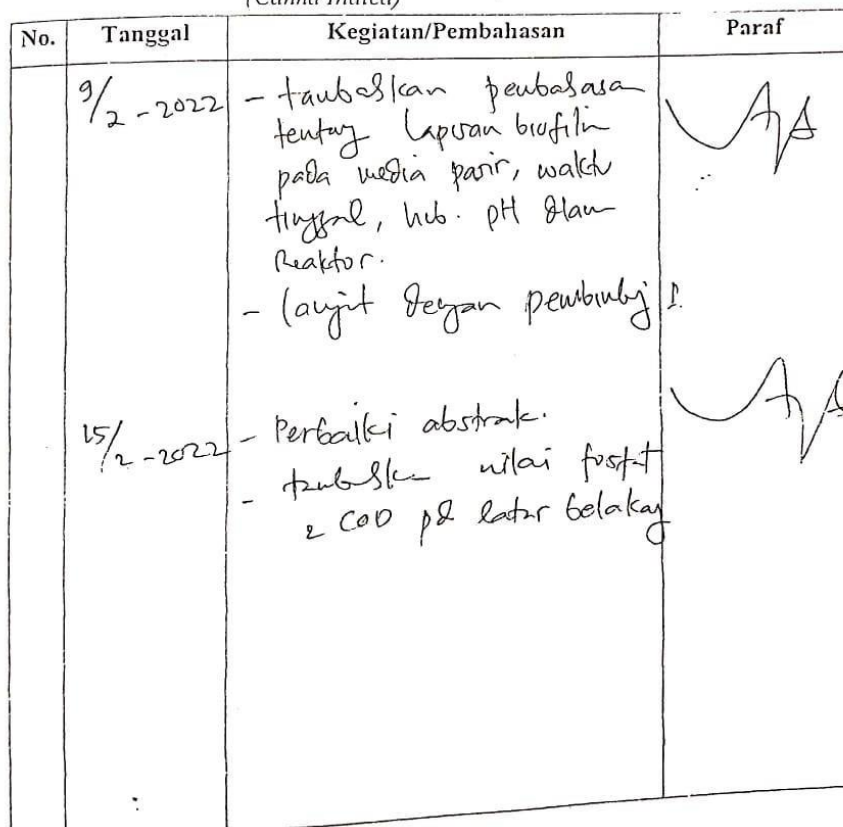 (Canna Indica)
No. Tanggal Kegiatan/Pembahasan Paraf
9/2-2022 - tambahkan pembahasan
tentang lapisan biofilm
pada media pasir, waktu
tinggal, hub. pH dlam
Reaktor.
- lanjut dengan pembimbing I.
15/2-2022 - Perbaiki abstrak.
- tambahkan nilai fosfat
& COD pd latar belakang